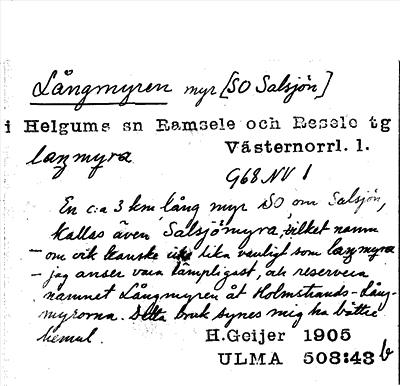 Långmyren myr [SO Salsjön]
i Helgums sn Ramsele och Resele tg
laŋmyra
Västernorrl. l.
G68 NV 1
En c:a 3 km lång myr SO om Salsjön,
kallas även Salsjömyra, vilket namn
– om ock kanske icke lika vanligt som laŋmyra
– jag anser vara lämpligast, och reservera
namnet Långmyren åt Holmstrands-Lång-
myrorna. Detta bruk synes mig ha bättre
hemul.
H.Geijer 1905
ULMA 508:43 b